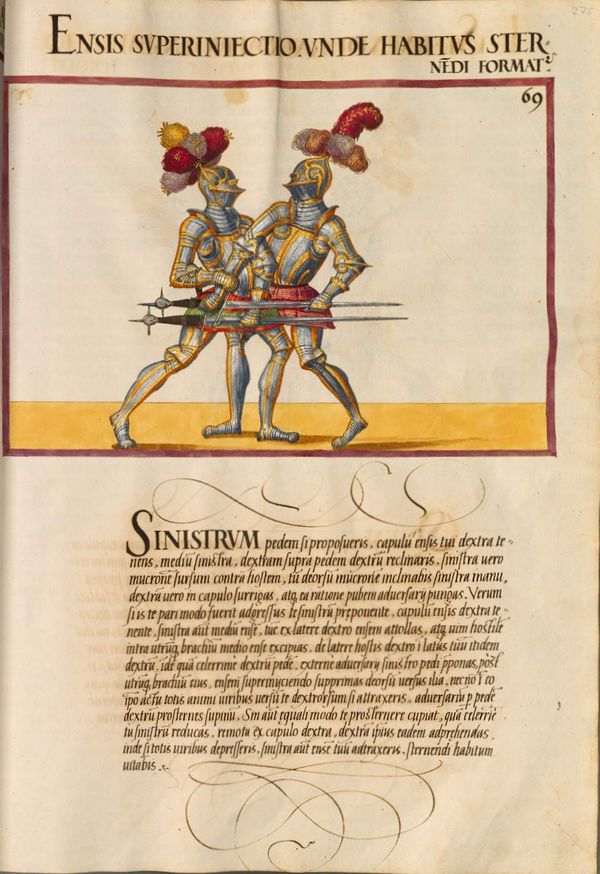 275
ENSIS SVPERINIECTIO, VNDE HABITVS STER=
NĒDI FORMAT̃
69
SINISTRVM pedem si proposueris, capulū ensis tui dextra te=
nens, mediū sinistra, dextram supra pedem dextrū reclinaris, sinistra uero
mucronē sursum contra hostem, tū deorsū mucronē inclinabis sinistra manu,
dextrā uero in capulo surrigas, atq; ea ratione pubem aduersarij pungas. Verum
si is te pari modo fuerit adgressus te sinistrū preponente, capulū ensis dextra te=
nente, sinistra aūt mediū ensē, tūc ex latere dextro ensem attollas, atq; uim hostilē
intra utrūq; brachiū medio ense excipias, de latere hostis dextro ī latus tuū itidem
dextrū, idē quā celerrime dextrū pedē, externe aduersarij sinistro pedi pponas, post
utrūq; brachiū eius, ensem superinyciendo supprimas deorsū uersus ilia, necnō ī eo
ipō actu totis animi uiribus uersū te dextrorsum si attraxeris, aduersariū p pedē
dextrū prosternes supinū. Sin aūt equali modo te prosternere cupiat, quā celerrie
tu sinistrū reducas, remota ex capulo dextra, dextrā ipius eadem adprehendas,
inde si totis uiribus depresseris, sinistra aūt ensē tuū adtraxeris, sternendi habitum
uitabis.